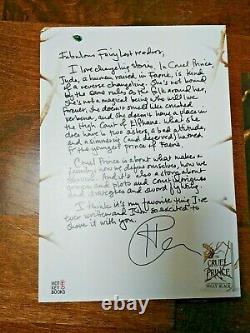 Fabulous FairyLoot readers,
I love changeling stories. In Cruel Prince,
Jude, a human raised in Faerie, is kind
of a reverse changeling. She's not bound
by the same rules as the folk around her,
She's not a magical being who will live
forever, she doesn't smell like crushed
verbena, and she doesn't have a place in
the High Court of Elfhame. What she
does have is two sisters, a bad attitude,
and a simmering (and deserved) hatred
for the youngest prince of Faerie.
Cruel Prince is about what makes a
family, how we define ourselves, how we
And it's also a story about
and plots and Court intrigues
and strategies and sword fighting.
I think it's my favorite thing I've
ever written and I'm so excited to
share it with you.
HOT
KEY
BOOKS
THE
CRUEL
PRINCE
HOLLY BLACK